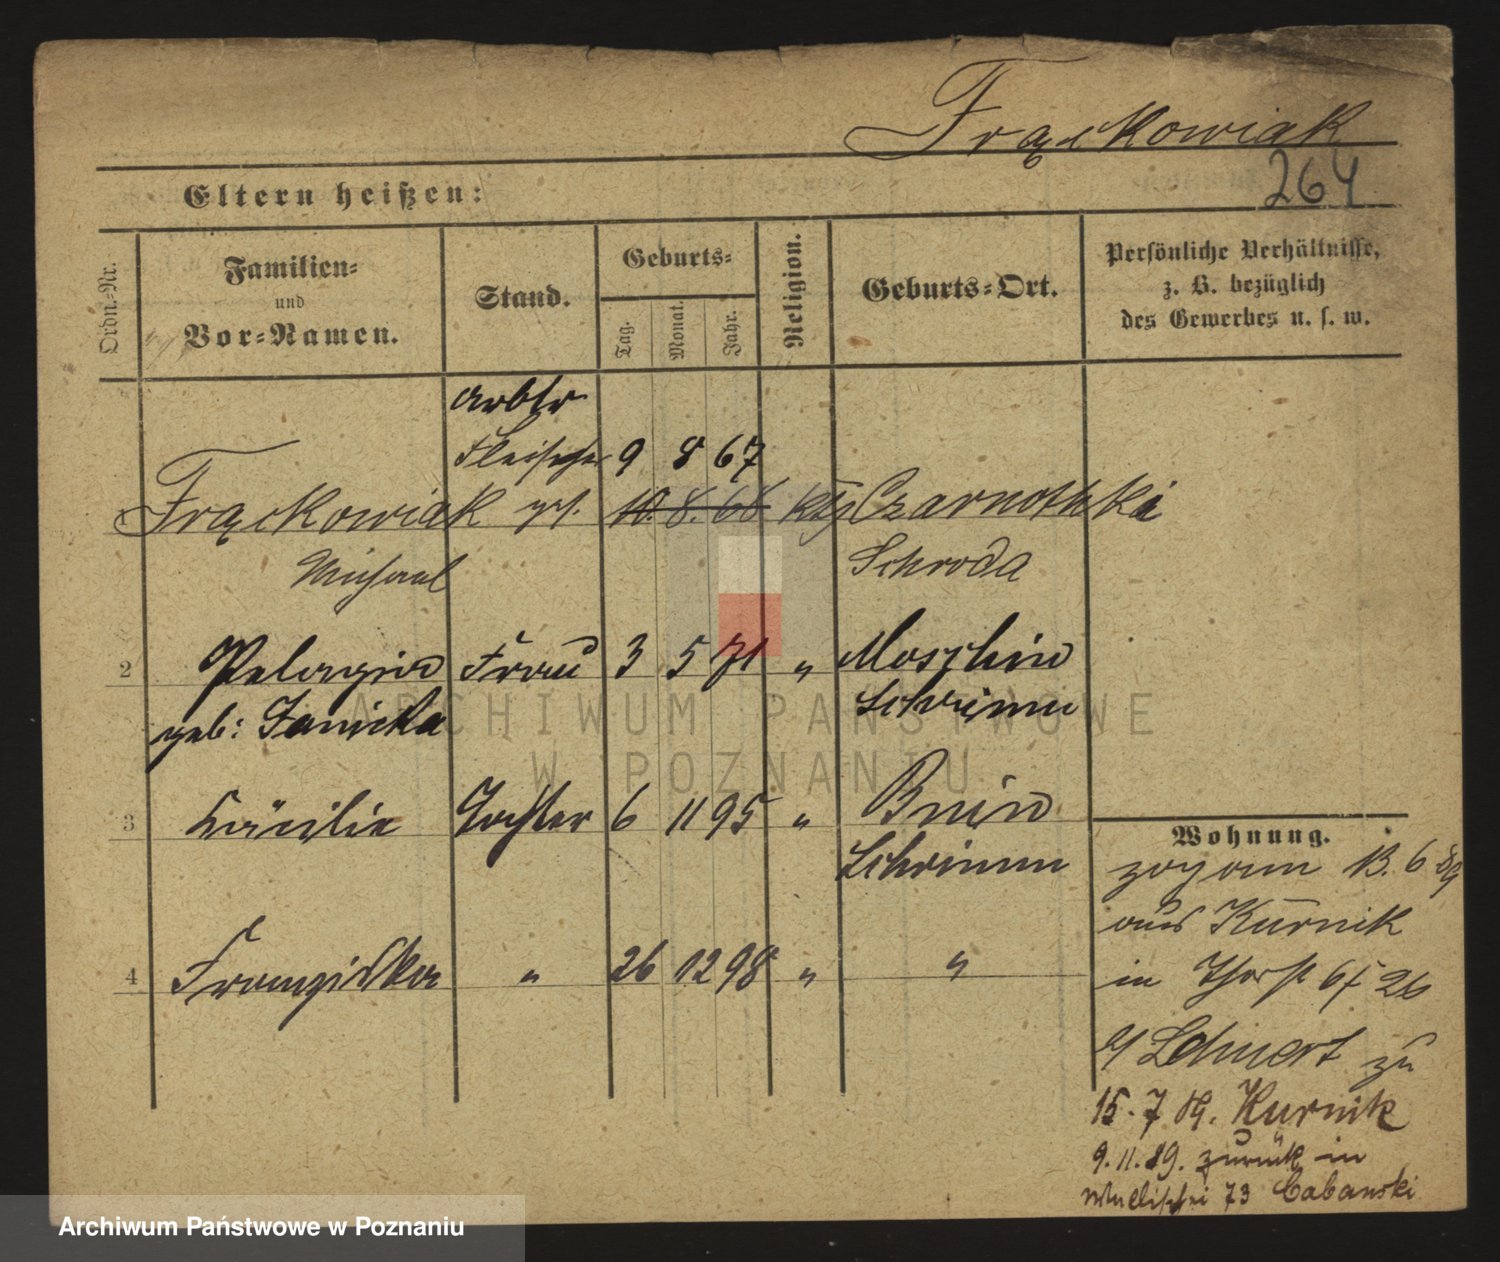 Frąckowiak
264
Eltern heißen:
Ordn.-Nr.
Familien-
und
Vor-Namen.
Stand.
Geburts-
Tag.
Monat.
Jahr.
Religion.
Geburts-Ort.
Persönliche Verhältnisse,
z. B. bezüglich
des Gewerbes u. s. w.
Arbtr
Fleischer 9 8 67
1 Frąckowiak 10. 8. 68 kth Czarnotki
Michael Schroda
2 Pelagia Frau 3 5 71 " Moschin
geb: Janicka Schrimm
3 Cäcilie Tochter 6 11 95 " Bnin
Schrimm
4 Franziska " 26 12 98 " "
Wohnung.
zog am 13. 6 89
aus Kurnik
in Thorst 67 26
Lehnert zu
15. 7 89. Kurnik
9. 11. 89. zurück in
73 Cabanski
ARCHIWUM PAŃSTWOWE
W POZNANIU
Archiwum Państwowe w Poznaniu